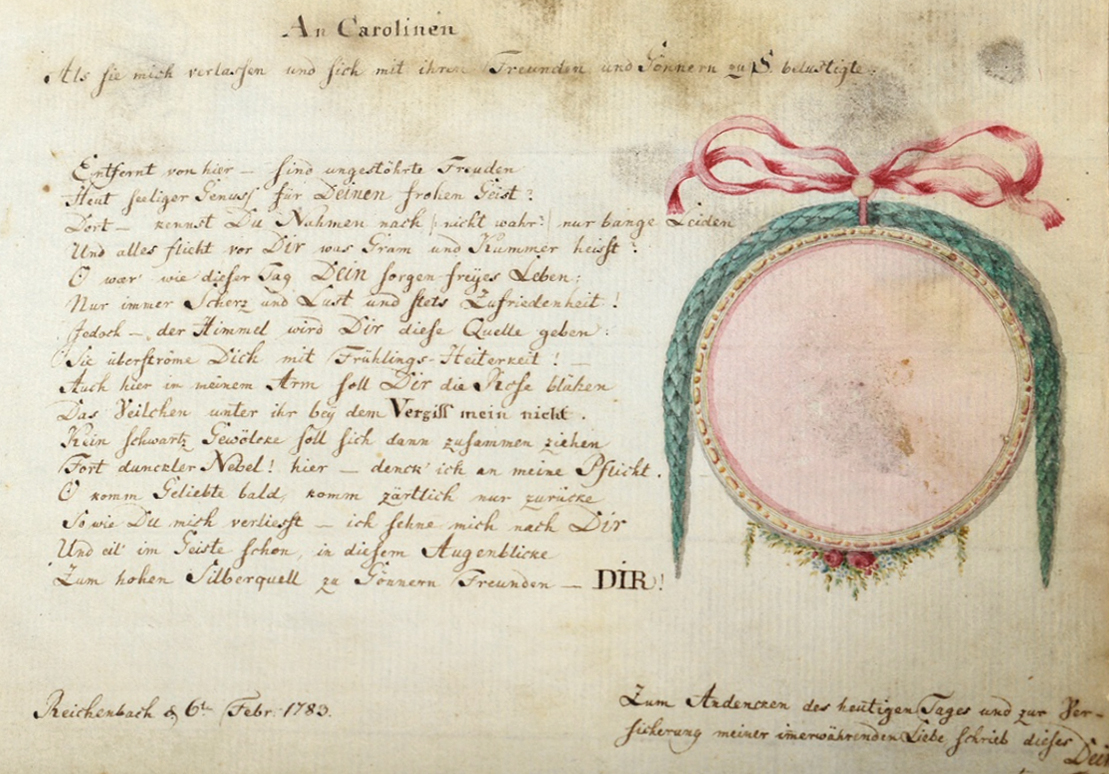 An Carolinen
Als sie mich verlassen und sich mit ihren Freunden und Gönnern zu S. belustigte.
Entfernt von hier — sind ungestöhrte Freuden
Heut seeliger Genuss für Deinen frohen Geist?
Dort — kennst Du Nahmen nach |: nicht wahr? :| nur bange Leiden
Und alles flicht vor Dir was Gram und Kummer heisst?
O wär' wie dieser Tag Dein sorgen freÿes Leben;
Nur immer Scherz und Lust und stets Zufriedenheit!
Jedoch — der Himmel wird Dir diese Quelle geben:
Sie überströme Dich mit Frühlings-Heiterkeit! —
Auch hier in meinem Arm soll Dir die Rose blühen
Das Veilchen unter ihr beÿ dem Vergiss mein nicht.
Kein schwartz Gewölcke soll sich dann zusammen ziehen
Fort dunckler Nebel! hier — denck' ich an meine Pflicht.
O komm Geliebte bald, komm zärtlich nur zurücke
So wie Du mich verliesst — ich sehne mich nach Dir
Und eil' im Geiste schon, in diesem Augenblicke
Zum hohen Silberquell zu Gönnern Freunden — DIR!
Reichenbach d 6te Febr. 1783.
Zum Andencken des heutigen Tages und zur Ver-
sicherung meiner imerwährenden Liebe schrieb dieses